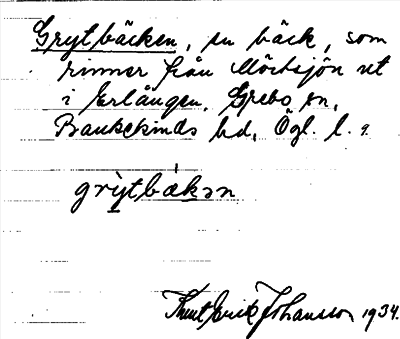 Grytbäcken, en bäck, som
rinner från Mörtsjön ut
i Erlången, Grebo sn,
Bankekinds hd, Ögl. l.
grytbäkən
Knut Erik Johansson 1934.